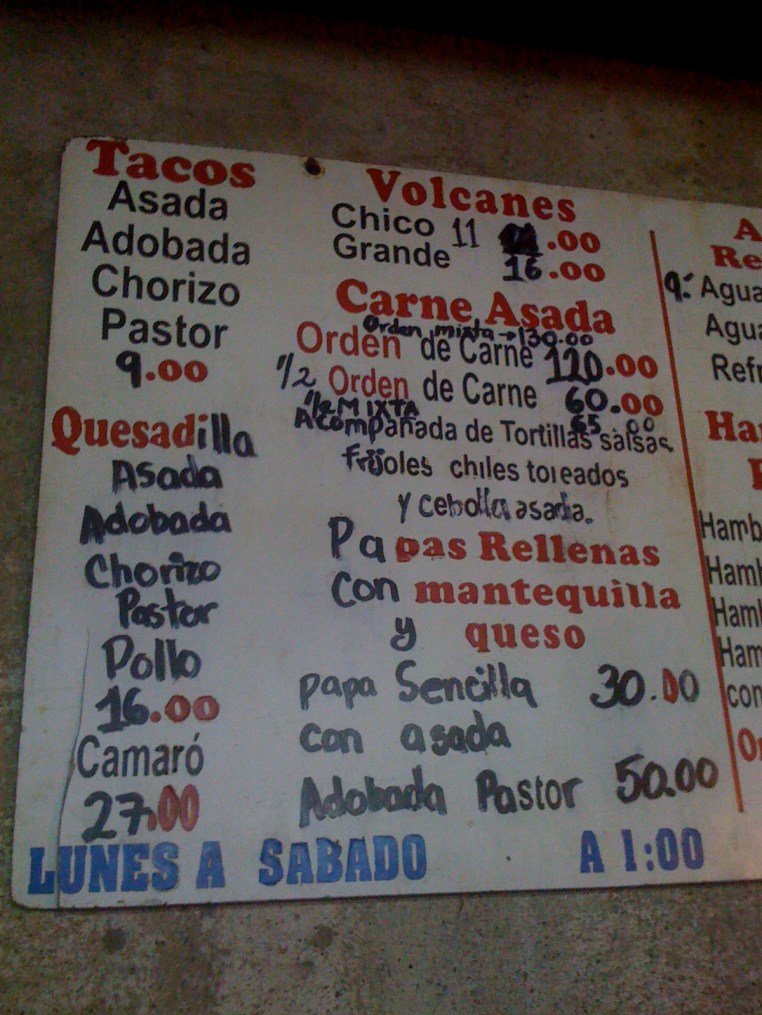 Tacos
Asada
Adobada
Chorizo
Pastor
9.00
Quesadilla
Asada
Adobada
Chorizo
Pastor
Pollo
16.00
Camaró
27.00
Volcanes
Chico 11 .00
Grande 16.00
Carne Asada
Orden mixta → 130.00
Orden de Carne 120.00
1/2 Orden de Carne 60.00
1/2 MIXTA 65.00
Acompañada de Tortillas salsas
frijoles chiles toreados
y cebolla asada.
Papas Rellenas
con mantequilla
y queso
papa Sencilla 30.00
con asada
Adobada Pastor 50.00
A
Re
9. Agua
Agua
Refr
Ha
Hamb
Hamb
Ham
Ham
con
Or
LUNES A SABADO A 1:00